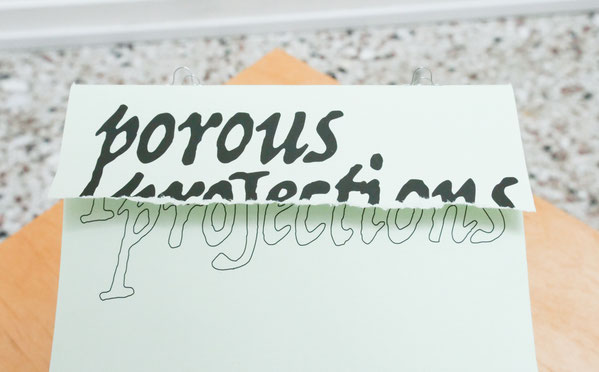 porous
projections